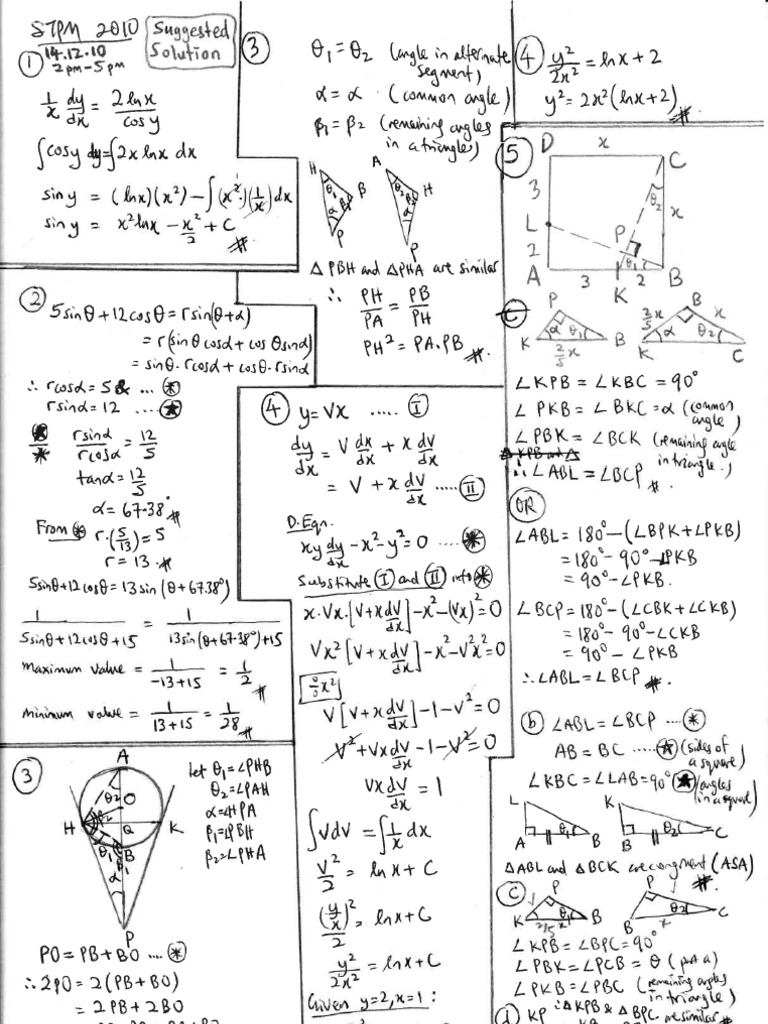 STPM 2010
14.12.10
2pm-5pm
Suggested
Solution
①
1/x dy/dx = 2lnx/cosy
∫cosy dy = ∫2x lnx dx
siny = (lnx)(x²) - ∫(x²)(1/x)dx
siny = x²lnx - x²/2 + C #
②
5sinθ+12cosθ = rsin(θ+α)
= r(sinθcosα + cosθsinα)
= sinθ·rcosα + cosθ·rsinα
∴ rcosα = 5 & ... ⊛
rsinα = 12 .... ★
★/* rsinα/rcosα = 12/5
tanα = 12/5
α = 67.38° #
From ⊛ r·(5/13) = 5
r = 13 #
5sinθ+12cosθ = 13sin(θ+67.38°)
1/(5sinθ+12cosθ+15) = 1/(13sin(θ+67.38°)+15)
maximum value = 1/(-13+15) = 1/2 #
minimum value = 1/(13+15) = 1/28 #
③
A
O
θ2
H
Q
K
B
θ1
β1
β2
α
P
let θ1 = ∠PHB
θ2 = ∠PAH
α = ∠HPA
β1 = ∠PBH
β2 = ∠PHA
PO = PB + BO .... ⊛
∴ 2PO = 2(PB + BO)
= 2PB + 2BO
③
θ1 = θ2 (angle in alternate
segment)
α = α (common angle)
β1 = β2 (remaining angles
in a triangles)
H
θ1
β1
B
α
P
A
θ2
β2
H
α
P
△PBH and △PHA are similar
∴ PH/PA = PB/PH
PH² = PA.PB #
④ y = Vx ..... Ⅰ
dy/dx = V dx/dx + x dV/dx
= V + x dV/dx ..... Ⅱ
D.Eqn.
xy dy/dx - x² - y² = 0 .... ⊛
Substitute Ⅰ and Ⅱ into ⊛
x·Vx·[V + x dV/dx] - x² - (Vx)² = 0
Vx²[V + x dV/dx] - x² - V²x² = 0
÷x²
V[V + x dV/dx] - 1 - V² = 0
V² + Vx dV/dx - 1 - V² = 0
Vx dV/dx = 1
∫VdV = ∫1/x dx
V²/2 = lnx + C
(y/x)²/2 = lnx + C
y²/2x² = lnx + C
Given y=2, x=1:
④ y²/2x² = lnx + 2
y² = 2x²(lnx+2) #
⑤
D
x
C
3
θ2
L
x
P
2
θ1
A
3
K
2
B
P
K
α
θ1
B
2/5 x
B
2/5 x
x
α
θ2
K
C
∠KPB = ∠KBC = 90°
∠PKB = ∠BKC = α (common
angle)
∠PBK = ∠BCK (remaining angle
in triangle.)
∴ ∠ABL = ∠BCP #
OR
∠ABL = 180° - (∠BPK + ∠PKB)
= 180° - 90° - ∠PKB
= 90° - ∠PKB.
∠BCP = 180° - (∠CBK + ∠CKB)
= 180° - 90° - ∠CKB
= 90° - ∠PKB
∴ ∠ABL = ∠BCP #
ⓑ ∠ABL = ∠BCP .... ⊛
AB = BC ..... ★ (sides of
a square)
∠KBC = ∠LAB = 90° ★ (angles
in a square)
L
A
θ1
B
K
B
θ2
C
△ABL and △BCK are congruent (ASA) #
ⓒ
P
K
2/5 x
θ1
B
P
B
x
θ2
C
∠KPB = ∠BPC = 90°
∠PBK = ∠PCB = θ (part a)
∠PKB = ∠PBC (remaining angles
in triangle)
∴ △KPB & △BPC are similar #
ⓓ KP